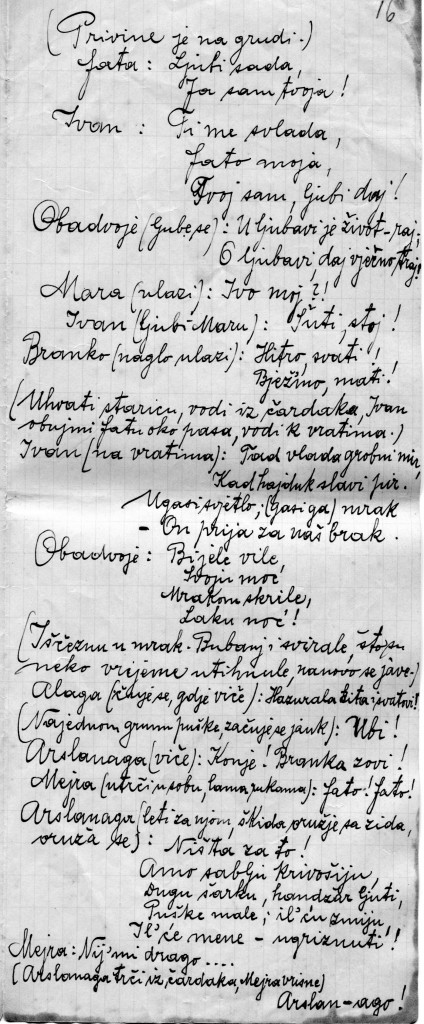 16
(Privine je na grudi.)
Fata: Ljubi sada,
Ja sam tvoja!
Ivan: Ti me svlada,
Fato moja,
Tvoj sam, ljubi daj!
Obadvoje (ljube se): U ljubavi je život-raj;
O ljubavi, daj vječno traj!
Mara (ulazi): Ivo moj?!
Ivan (ljubi Maru): Šuti, stoj!
Branko (naglo ulazi): Hitro, svati!,
Bježmo, mati!
(Uhvati staricu, vodi iz čardaka, Ivan
obujmi Fatu oko pasa, vodi k vratima.)
Ivan (na vratima): Tad vlada grobni mir,
Kad hajduk slavi pir.
Ugasi svjetlo; (Gasi ga) mrak
- On prija za naš brak.
Obadvoje: Bijele vile,
Svoju moć
Mrakom skrile,
Laku noć!
(Iščeznu u mrak. Bubanj i svirale, što su
neko vrijeme utihnule, nanovo se jave.)
Alaga (čuje se, gdje viče): Hazurala kita i svatovi!
(Najednom grunu puške, začuje se jauk): Ubi!
Arslanaga (viče): Konje! Branka zovi!
Mejra (utrči u sobu, lama rukama): Fato! Fato!
Arslanaga (leti za njom, skida oružje sa zida,
oruža se): Ništa za to!
Amo sablju krivošiju,
Dugu šarku, handžar ljuti,
Puške male; il' ću zmiju,
Il' će mene - ugriznuti!
Mejra: Nij' mi drago....
(Arslanaga trči iz čardaka, Mejra vrisne)
Arslan-ago!